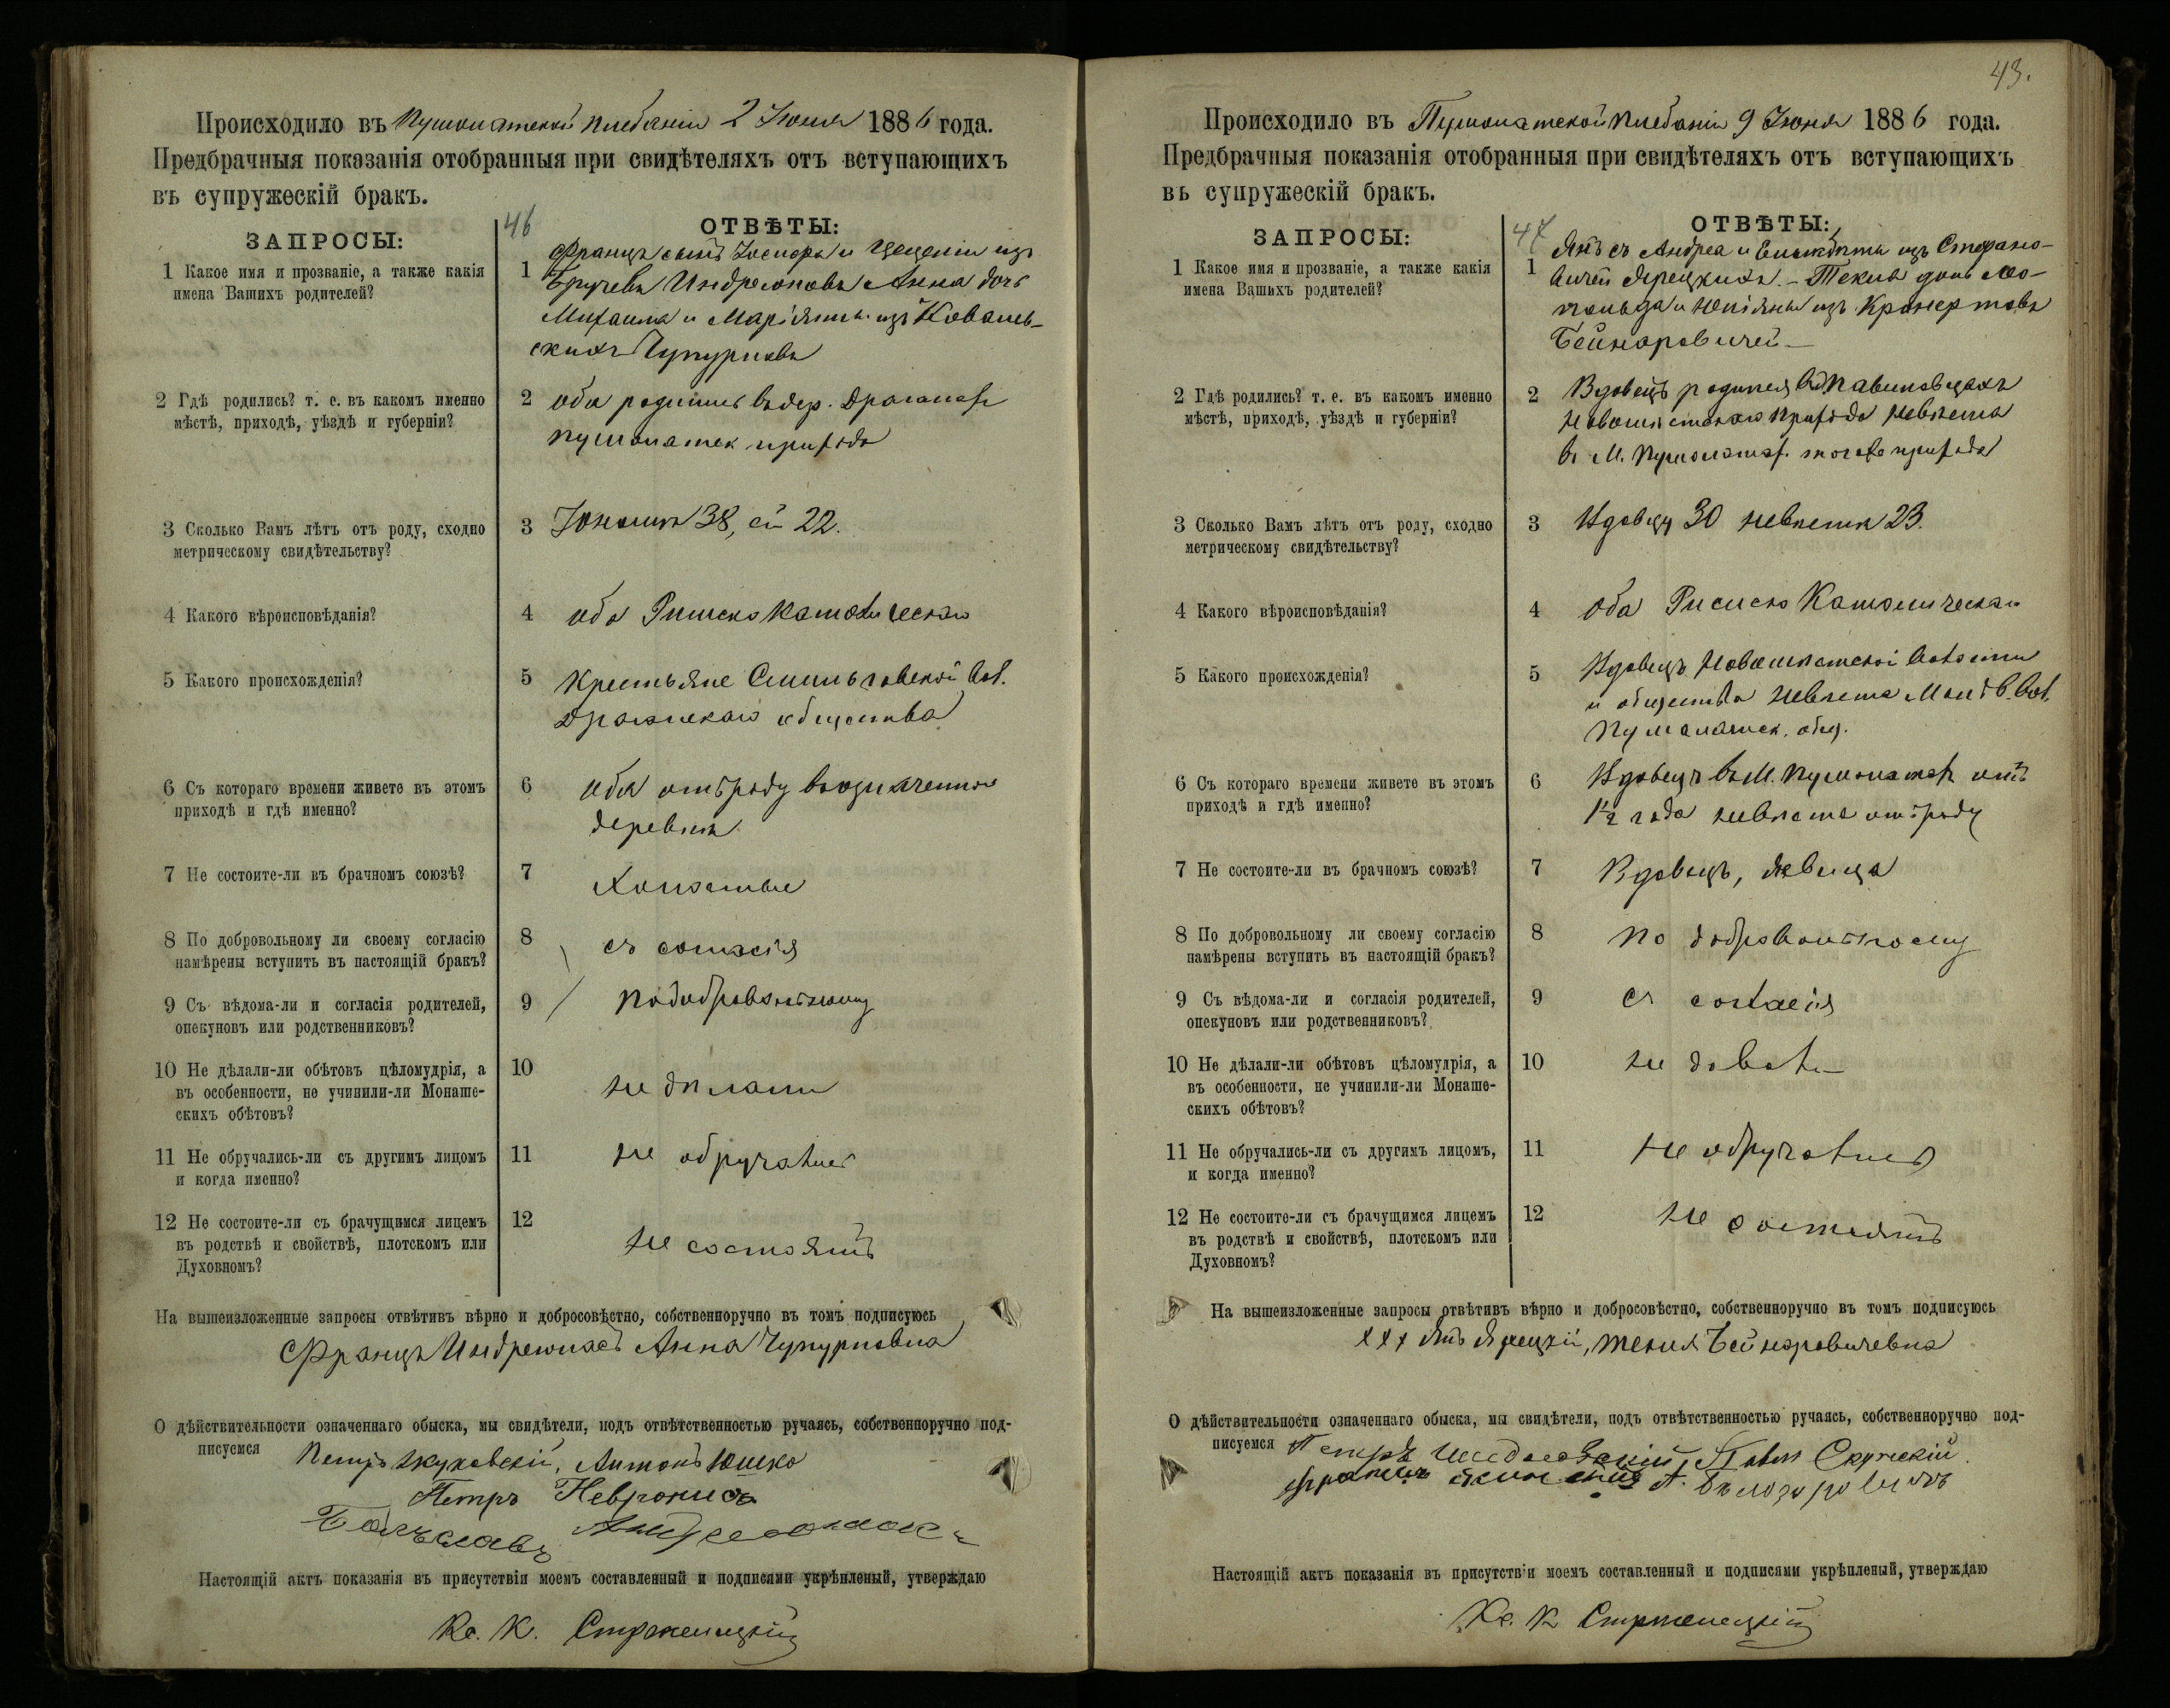 Происходило въ Пушолатской плебаніи 2 Іюня 1886 года.
Предбрачныя показанія отобранныя при свидѣтеляхъ отъ вступающихъ
въ супружескій бракъ.
46
ЗАПРОСЫ:
ОТВѢТЫ:
1 Какое имя и прозваніе, а также какія
имена Вашихъ родителей?
1 Францъ сынъ Іосифа и Цециліи изъ
Анна дочь
Михаила и Маріянны изъ Ковалев-
скихъ Чупурновъ
2 Гдѣ родились? т. е. въ какомъ именно
мѣстѣ, приходѣ, уѣздѣ и губерніи?
2 оба родились въ дер.
пушолатск. прихода
3 Сколько Вамъ лѣтъ отъ роду, сходно
метрическому свидѣтельству?
3 Юноша 38, ей 22.
4 Какого вѣроисповѣданія?
4 оба Римско Католическаго
5 Какого происхожденія?
5 Крестьяне Смильговской вол.
общества
6 Съ котораго времени живете въ этомъ
приходѣ и гдѣ именно?
6 оба отъ роду въ означенной
деревнѣ
7 Не состоите-ли въ брачномъ союзѣ?
7 Холостые
8 По добровольному ли своему согласію
намѣрены вступить въ настоящій бракъ?
8 съ согласія
9 Съ вѣдома-ли и согласія родителей,
опекуновъ или родственниковъ?
9 по добровольному
10 Не дѣлали-ли обѣтовъ цѣломудрія, а
въ особенности, не учинили-ли Монаше-
скихъ обѣтовъ?
10 не дѣлали
11 Не обручались-ли съ другимъ лицомъ
и когда именно?
11 не обручались
12 Не состоите-ли съ брачущимся лицемъ
въ родствѣ и свойствѣ, плотскомъ или
Духовномъ?
12 не состоятъ
На вышеизложенные запросы отвѣтивъ вѣрно и добросовѣстно, собственноручно въ томъ подписуюсь
Францъ Анна Чупурновна
О дѣйствительности означеннаго обыска, мы свидѣтели, подъ отвѣтственностью ручаясь, собственноручно под-
писуемся Петръ Антонъ Юшко
Петръ
Болѣславъ
Настоящій актъ показанія въ присутствіи моемъ составленный и подписями укрѣпленый, утверждаю
Кс. К. Стржелецкій
43.
Происходило въ Пушолатской плебаніи 9 Іюня 1886 года.
Предбрачныя показанія отобранныя при свидѣтеляхъ отъ вступающихъ
въ супружескій бракъ.
47
ЗАПРОСЫ:
ОТВѢТЫ:
1 Какое имя и прозваніе, а также какія
имена Вашихъ родителей?
1 Янъ съ Андрея и Елисаветы изъ Стефано-
вичей Ярецкихъ. - Текля дочь Лео-
польда и Юліяны изъ
Бейнаровичей
2 Гдѣ родились? т. е. въ какомъ именно
мѣстѣ, приходѣ, уѣздѣ и губерніи?
2 Вдовецъ родился въ
прихода невѣста
в М. Пушолатах. того же прихода
3 Сколько Вамъ лѣтъ отъ роду, сходно
метрическому свидѣтельству?
3 Вдовцу 30 невѣстѣ 23.
4 Какого вѣроисповѣданія?
4 оба Римско Католическаго
5 Какого происхожденія?
5 Вдовецъ волости
и общества невѣста вол.
Пушолатск. общ.
6 Съ котораго времени живете въ этомъ
приходѣ и гдѣ именно?
6 Вдовецъ въ М. Пушолатах отъ
1½ года невѣста отъ роду
7 Не состоите-ли въ брачномъ союзѣ?
7 Вдовецъ, дѣвица
8 По добровольному ли своему согласію
намѣрены вступить въ настоящій бракъ?
8 по добровольному
9 Съ вѣдома-ли и согласія родителей,
опекуновъ или родственниковъ?
9 съ согласія
10 Не дѣлали-ли обѣтовъ цѣломудрія, а
въ особенности, не учинили-ли Монаше-
скихъ обѣтовъ?
10 не
11 Не обручались-ли съ другимъ лицомъ,
и когда именно?
11 не обручались
12 Не состоите-ли съ брачущимся лицемъ
въ родствѣ и свойствѣ, плотскомъ или
Духовномъ?
12 не состоятъ
На вышеизложенные запросы отвѣтивъ вѣрно и добросовѣстно, собственноручно въ томъ подписуюсь
ххх Янъ Ярецкій, Текля Бейнаровичевна
О дѣйствительности означеннаго обыска, мы свидѣтели, подъ отвѣтственностью ручаясь, собственноручно под-
писуемся Петръ
Настоящій актъ показанія въ присутствіи моемъ составленный и подписями укрѣпленый, утверждаю
Кс. К Стржелецкій